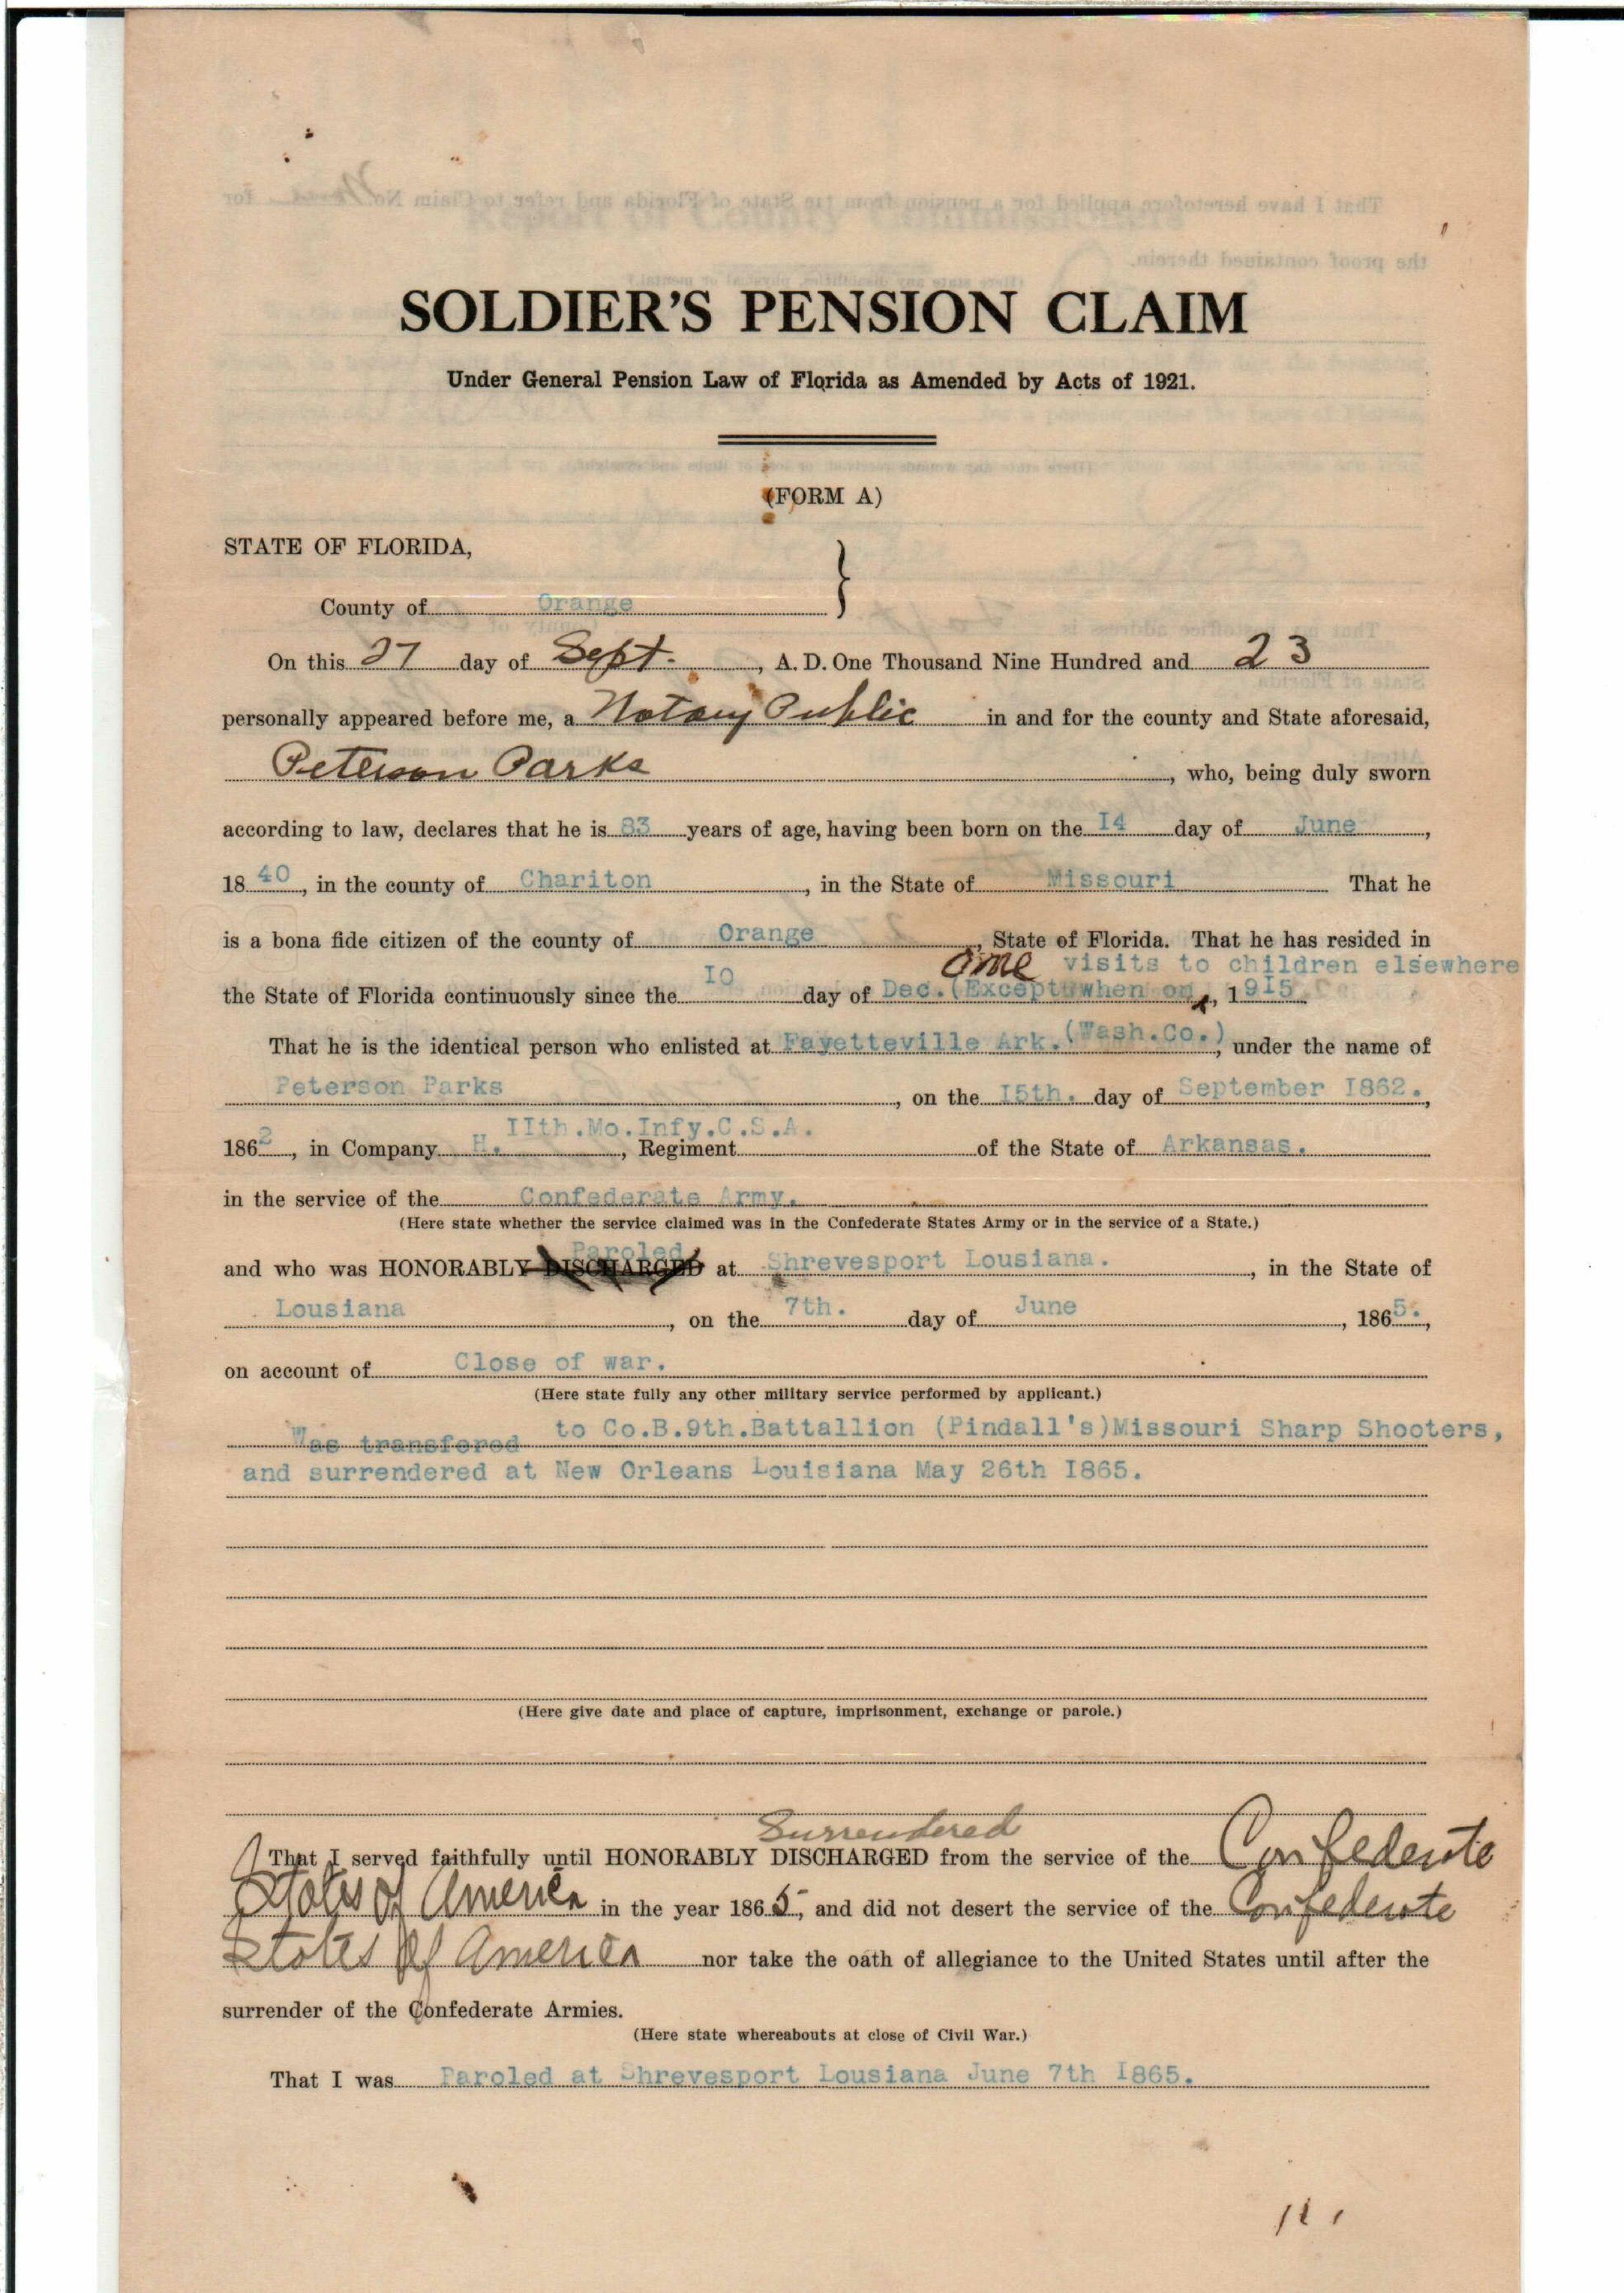 SOLDIER'S PENSION CLAIM
Under General Pension Law of Florida as Amended by Acts of 1921.
(FORM A)
STATE OF FLORIDA,
County of Orange
On this 27 day of Sept. , A. D. One Thousand Nine Hundred and 23
personally appeared before me, a Notary Public in and for the county and State aforesaid,
Peterson Parks , who, being duly sworn
according to law, declares that he is 83 years of age, having been born on the I4 day of June ,
18 40 , in the county of Chariton , in the State of Missouri That he
is a bona fide citizen of the county of Orange , State of Florida. That he has resided in
visits to children elsewhere
the State of Florida continuously since the IO day of Dec.(Except when on , 1 9I5
That he is the identical person who enlisted at Fayetteville Ark.(Wash.Co.) , under the name of
Peterson Parks , on the I5th. day of September I862. ,
186 2 , in Company H. IIth.Mo.Infy.C.S.A. , Regiment of the State of Arkansas.
in the service of the Confederate Army.
(Here state whether the service claimed was in the Confederate States Army or in the service of a State.)
Paroled
and who was HONORABLY DISCHARGED at Shrevesport Lousiana. , in the State of
Lousiana , on the 7th. day of June , 186 5. ,
on account of Close of war.
(Here state fully any other military service performed by applicant.)
Was transfered to Co.B.9th.Battallion (Pindall's)Missouri Sharp Shooters,
and surrendered at New Orleans Louisiana May 26th I865.
(Here give date and place of capture, imprisonment, exchange or parole.)
Surrendered
That I served faithfully until HONORABLY DISCHARGED from the service of the Confederate
States of America in the year 186 5 , and did not desert the service of the Confederate
States of America nor take the oath of allegiance to the United States until after the
surrender of the Confederate Armies.
(Here state whereabouts at close of Civil War.)
That I was Paroled at Shrevesport Lousiana June 7th I865.